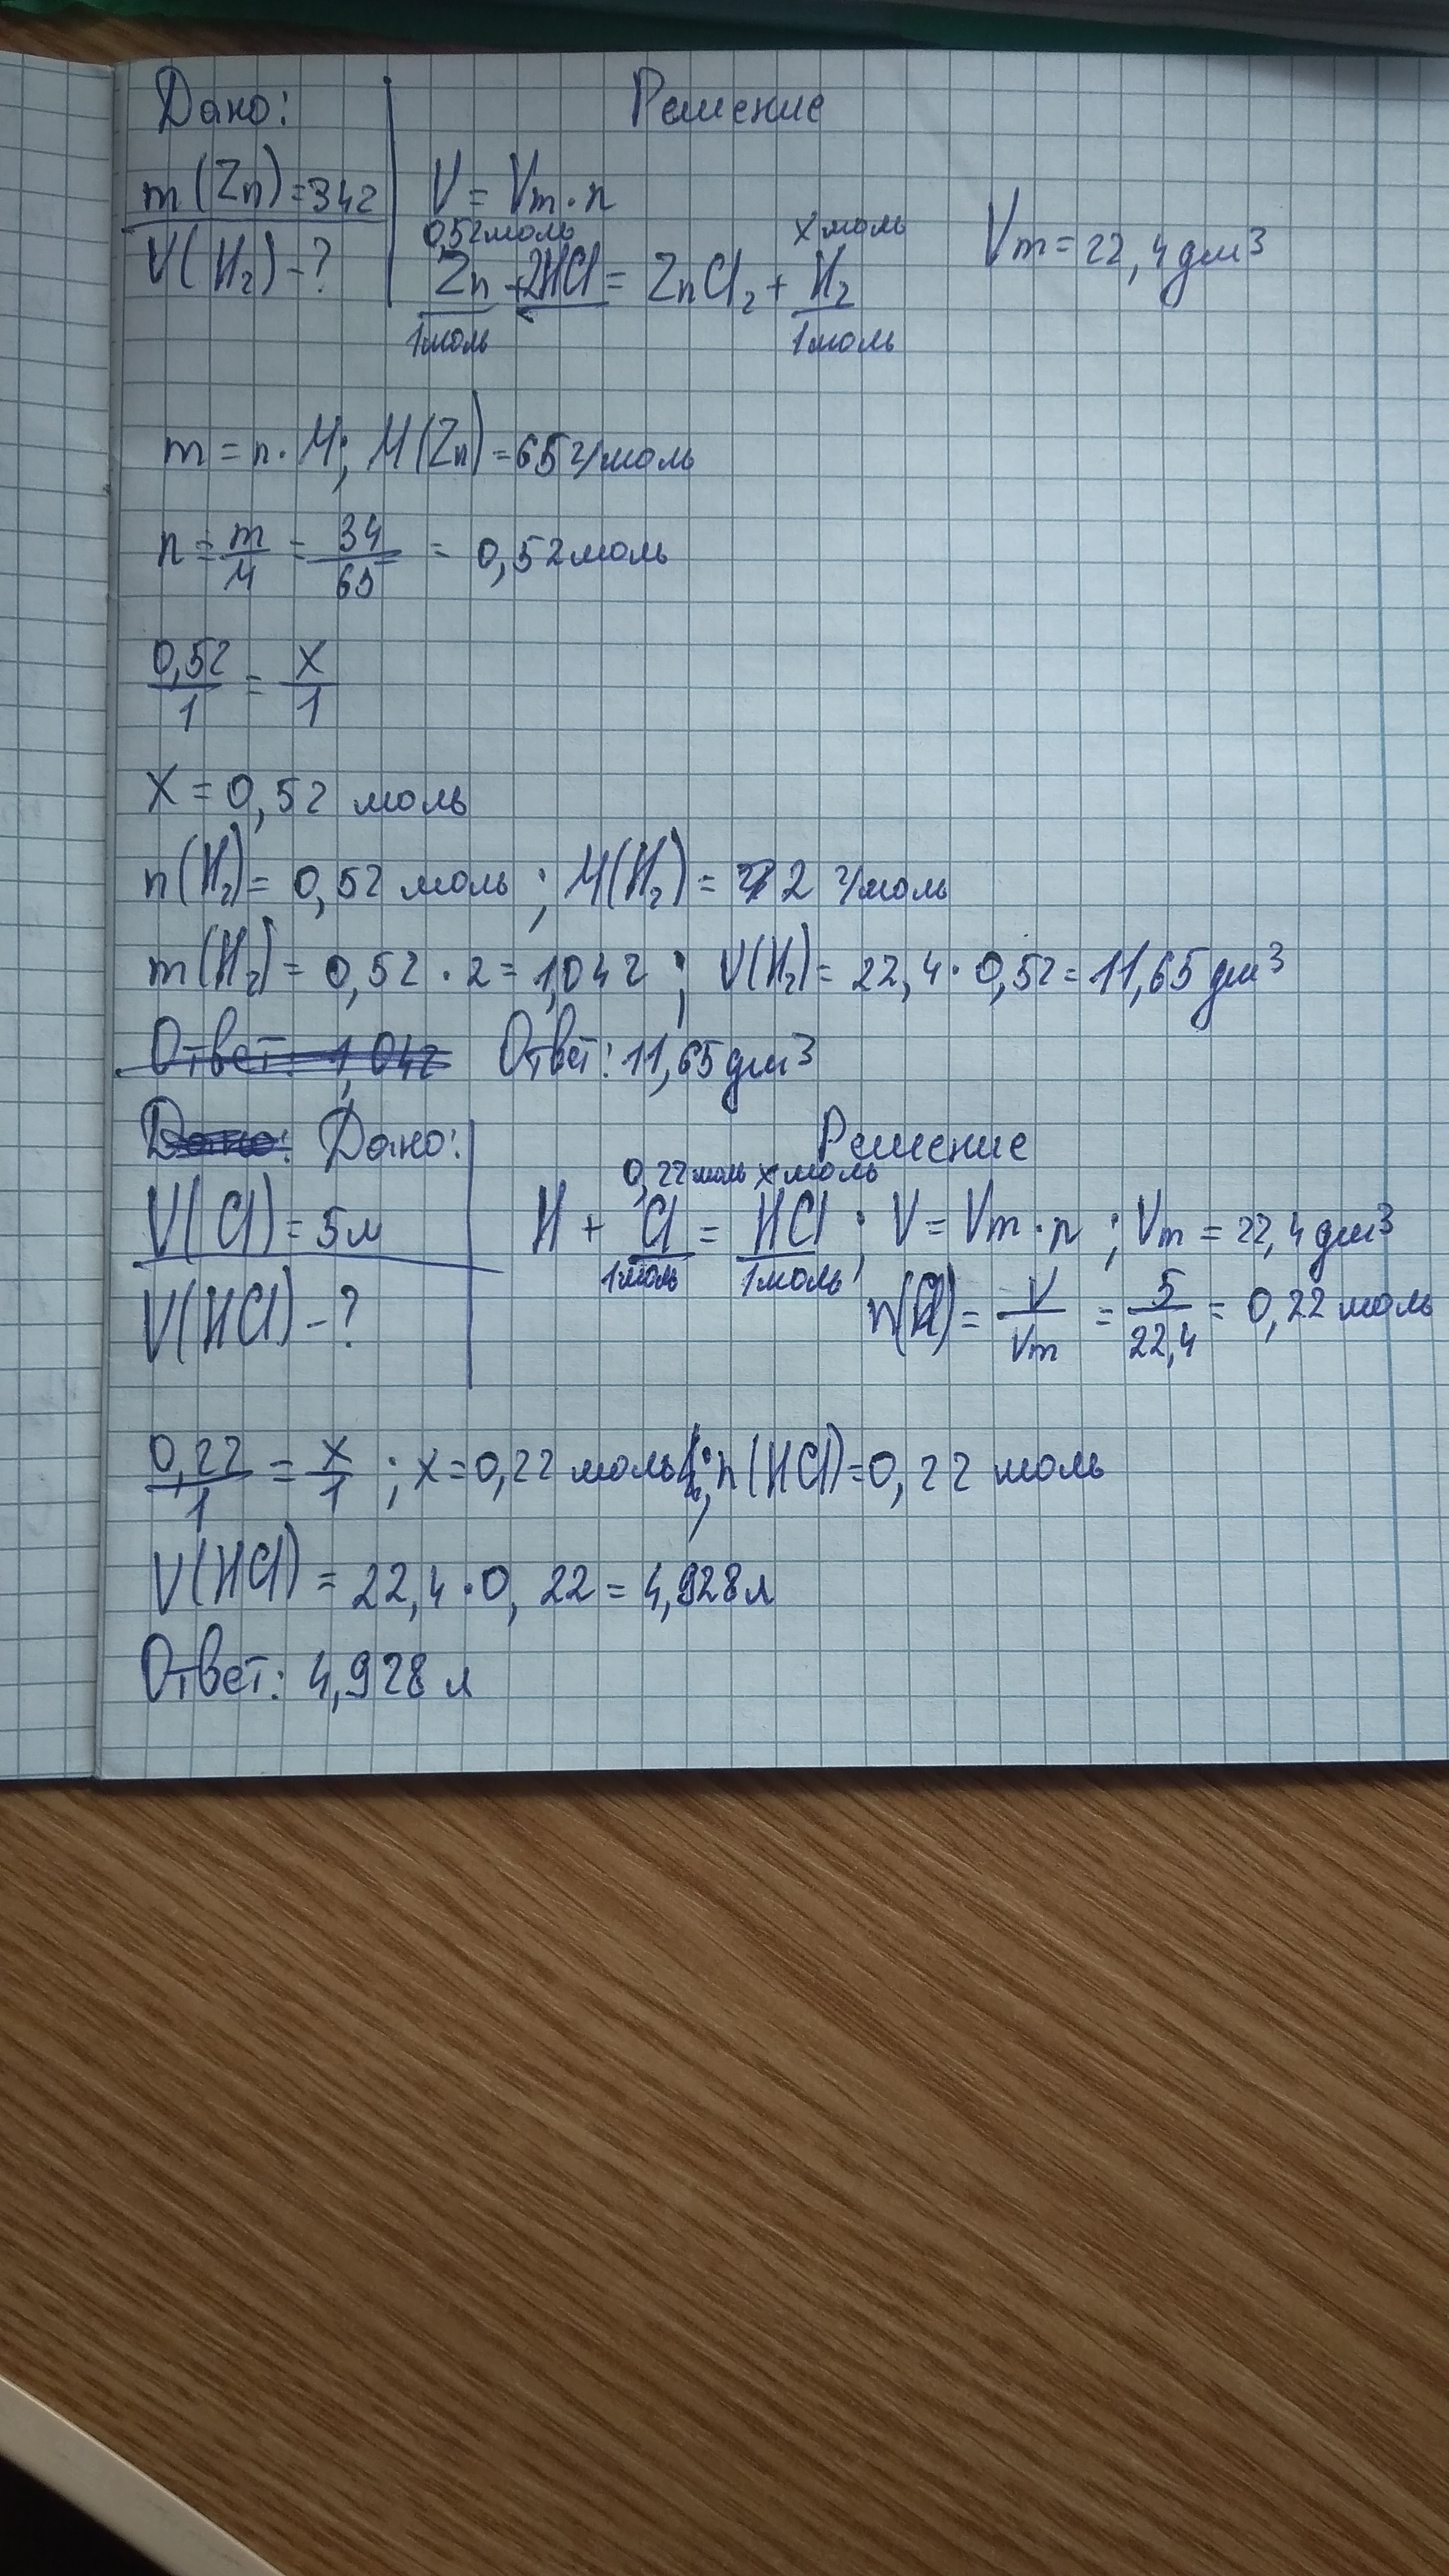 Дано:
Решение
m(Zn)=34г
V = Vm·n
Vm=22,4дм³
V(H₂)-?
0,52моль
x моль
Zn + 2HCl = ZnCl₂ + H₂
1моль
1моль
m = n·M; M(Zn)=65г/моль
n = m/M = 34/65 = 0,52моль
0,52/1 = x/1
x = 0,52 моль
n(H₂)= 0,52 моль ; M(H₂) = 2 г/моль
m(H₂) = 0,52·2=1,04г ; V(H₂)= 22,4·0,52=11,65дм³
Ответ: 1,04г Ответ: 11,65дм³
Дано: Дано:
Решение
0,22моль x моль
V(Cl)=5л
H + Cl = HCl ; V = Vm·n ; Vm = 22,4дм³
1моль 1моль
V(HCl)-?
n(Cl)= V/Vm = 5/22,4 = 0,22 моль
0,22/1 = x/1 ; x=0,22 моль ; n(HCl)=0,22 моль
V(HCl) = 22,4·0,22=4,928л
Ответ: 4,928 л